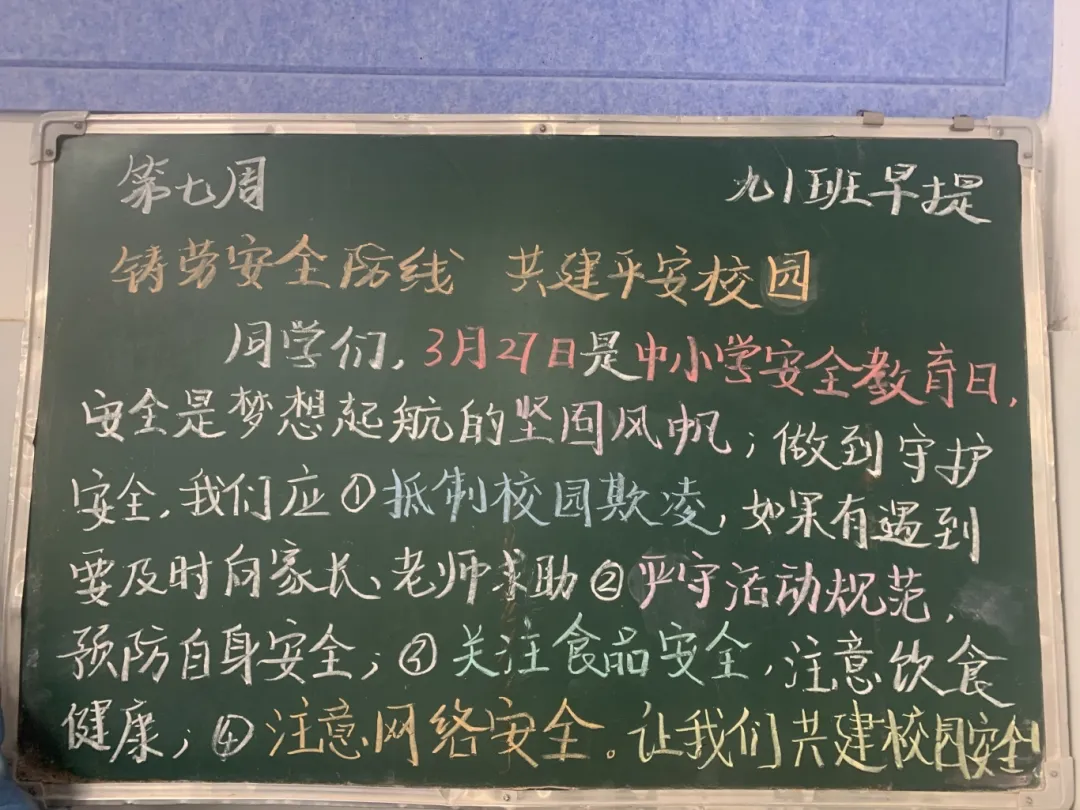 第七周 九1班早提
铸劳安全防线 共建平安校园
同学们,3月27日是中小学安全教育日,
安全是梦想起航的坚固风帆;做到守护
安全,我们应①抵制校园欺凌,如果有遇到
要及时向家长、老师求助②严守活动规范,
预防自身安全;③关注食品安全,注意饮食
健康;④注意网络安全。让我们共建校园安全